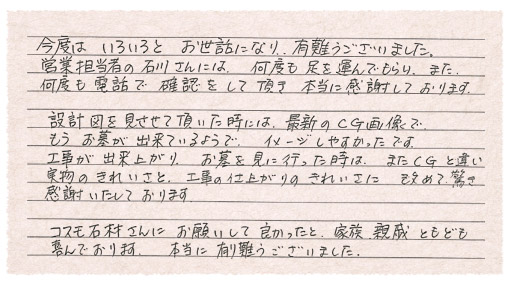 今度は いろいろと お世話になり、有難うございました。
営業担当者の石川さんには、何度も足を運んでもらい、また、
何度も電話で 確認をして頂き 本当に感謝しております。
設計図を見させて頂いた時には、最新のCG画像で、
もう お墓が出来ているようで、イメージしやすかったです。
工事が出来上がり、お墓を見に行った時は、またCGと違い
実物のきれいさと、工事の仕上がりのきれいさに 改めて驚き
感謝いたしております。
コスモ石材さんに お願いして良かったと、家族 親戚ともども
喜んでおります。本当に有難うございました。